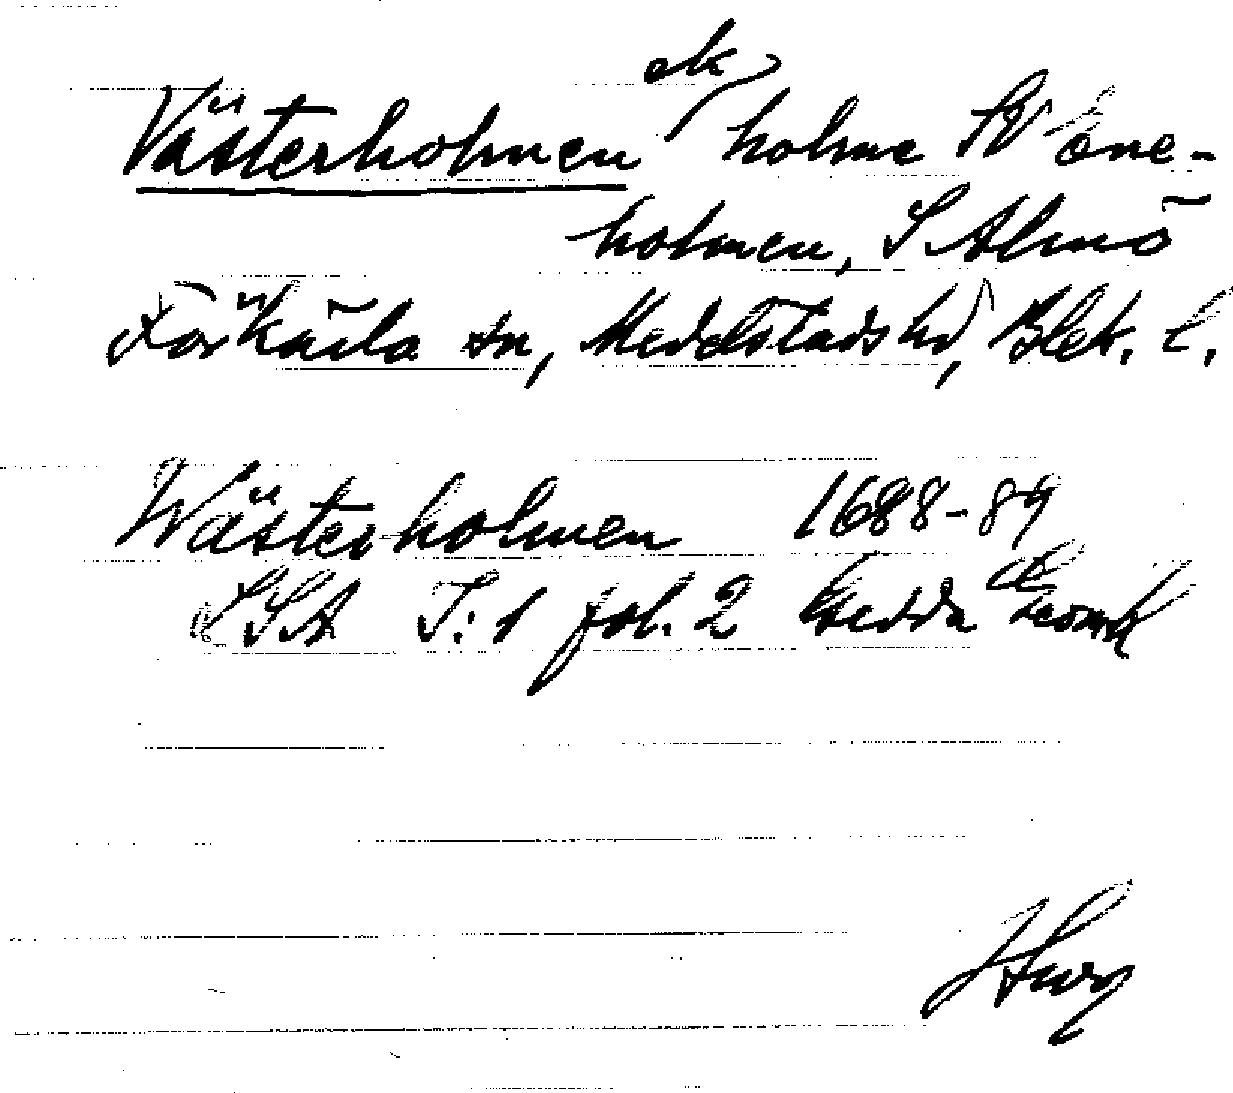 ek
Västerholmen holme SV Ene-
holmen, S Almö
Förkärla sn, Medelstads hd, Blek. l.
Wästerholmen 1688-89
LSA S:1 fol. 2 Gedda